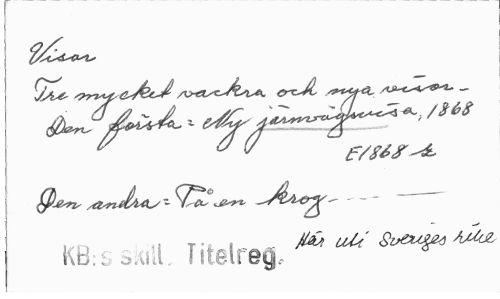 Visor
Tre mycket vackra och nya visor_
Den första = Ny järnvägsvisa, 1868
E1868
Den andra = På en krog - - - —
Här uti Sveriges rike
KB:s skill. Titelreg.